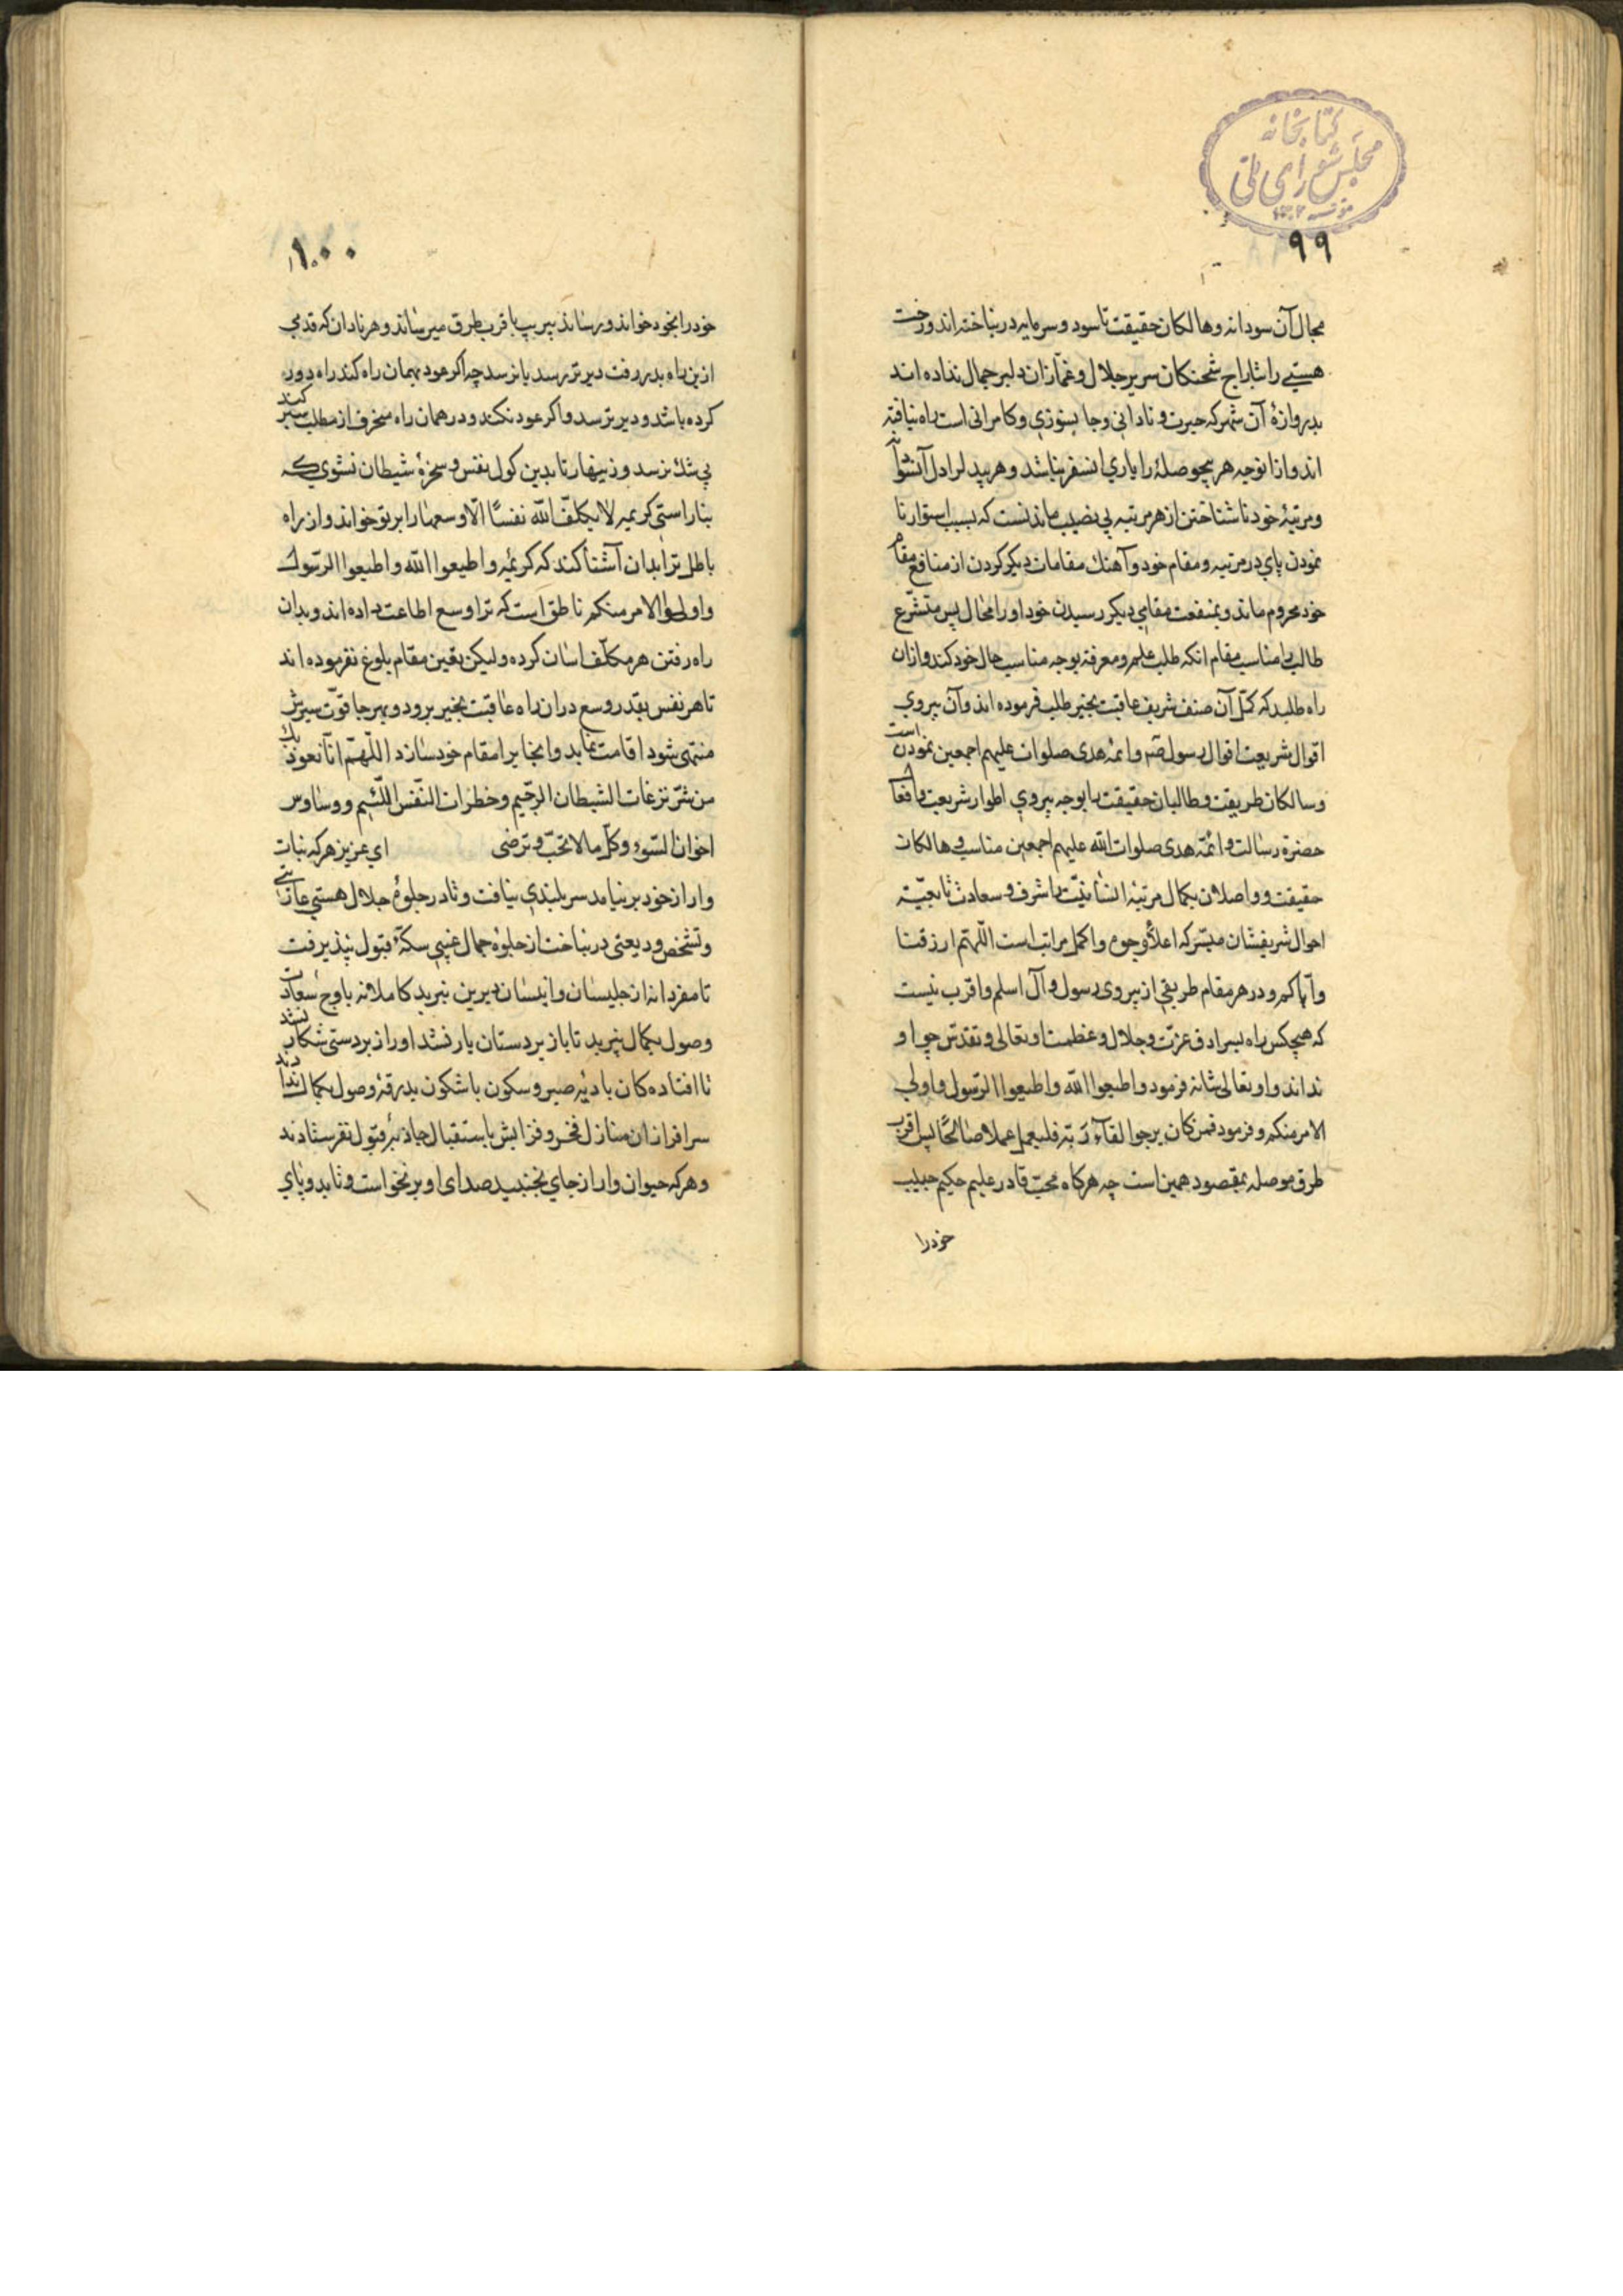 کتابخانه
مجلس شورای ملی
۹۹
مجال آن سودا نه و هالکان حقیقت تا سود و سرمایه در نباخته اند و رخت
هستی را بتاراج شحنکان سریر جلال و غمّازان دلبر جمال نداده اند
بدروازهٔ آن شهر که حیرت و نادانی و جا بسوزی و کامرانی است راه نیافته
اند و از انوجه هر بیحوصلهٔ را یاری انسفر نباشد و هر بیدل را دل آنشوا نه
و مرتبهٔ خود ناشناختن از هر مرتبه بی نصیب ماندنست که بسبب استوار نا
نمودن پای در مرتبه و مقام خود و آهنك مقامات دیکر کردن از منافع مقام
خود محروم ماند و بمنفعت مقامی دیکر رسیدن خود او را محال پس متشرّع
طالب را مناسب مقام انکه طلب علم و معرفة بوجه مناسب حال خود کند و ازان
راه طلبد که کمّل آن صنف شریف عاقبت بخیر طلب فرموده اند و آن پیروی
اقوال شریعت اقوال رسول صم و ائمه هدی صلوات علیهم اجمعین نمودن است
و سالکان طریقت و طالبان حقیقت را بوجه پیروی اطوار شریعت و افعا ل
حضرة رسالت و ائمّه هدی صلوات الله علیهم اجمعین مناسب و هالکان
حقیقت و واصلان بکمال مرتبهٔ انسانیّت را شرف و سعادت تابعیّت
احوال شریفشان میسّر که اعلاء وجوه و اکمل مراتب است اللّهمّ ارزقنا
و آیاکم و در هر مقام طریقی از پیروی رسول و آل اسلم و اقرب نیست
که هیچکس راه بسرادق عزّت و جلال و عظمت او تعالی و تقدّس چو او
نداند و او تعالی شانه فرمود و اطیعوا الله و اطیعوا الرّسول و اولی
الامر منکم و فرمود فمن کان یرجوا لقآء ربّه فلیعمل عملا صالحًا پس اقرب
طرق موصله بمقصود همین است چه هرکاه محبّ قادر علیم حکیم حبیب
خودرا
۱۰۰
خود را بخود خواند و رساند بیریب باقرب طرق میرساند و هر نادان که قدمی
ازین راه بدر رفت دیرتر رسد یا نرسد چه اکر عود بهمان راه کند راه دور
کرده باشد و دیرتر رسد و اکر عود نکند و در همان راه منحرف از مطلب سیر کند
بی شك نرسد و زینهار تا بدین کول نفس و سخرهٔ شیطان نشوی که
بناراستی کریمه لا یکلّف الله نفسًا الّا وسعها را بر تو خواند و از راه
باطل ترا بدان آشنا کند که کریمهٔ و اطیعوا الله و اطیعوا الرّسول
و اولوا الامر منکم ناطق است که ترا وسع اطاعت داده اند و بدان
راه رفتن هر مکلّف اسان کرده و لیکن یقین مقام بلوغ نفرموده اند
تا هر نفس بقدر وسع دران راه عاقبت بخیر برود و بهر جا قوّت سیرش
منتهی شود اقامت نماید و انجا را مقام خود سازد اللّهمّ انّا نعوذ بك
من شرّ نزغات الشیطان الرجیم و خطرات النّفس اللّئیم و وساوس
اخوان السّوء و کلّ ما لا تحبّ و ترضی ای عزیز هر که نبات
وار از خود برنیامد سربلندی نیافت و تا در جلوهٔ جلال هستی عاریتی
و تشخص ودیعتی در نباخت از جلوهٔ جمال غیبی سکّهٔ قبول نپذیرفت
تا مفردانه از جلیسان و انیسان دیرین نبرید کاملانه باوج سعادت
وصول بکمال نپرید تا باز بر دستان یار نشد او را زبردستی شکار نشد
تا افتاده کان بادیهٔ صبر و سکون با شکون بدرقهٔ وصول بکمال ندادند
سرافرازان منازل فخر و فزایش باستقبال جاذبهٔ قبول نفرستادند
و هر که حیوان وار از جای بجنبید صدای او برنخواست و تا بدو پای